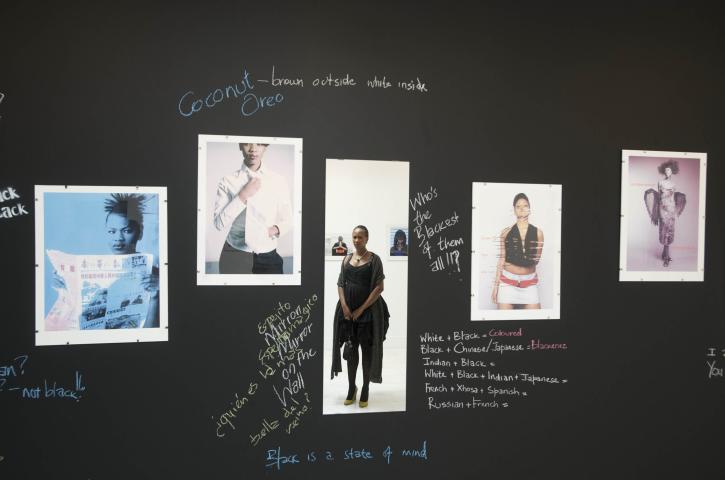 Coconut - brown outside white inside
Oreo
ck
ack
Who's
the
Blackest
of them
all!!?
Espejito
Espejito mágico
Mirror
Mirror
on The
Wall
¿quién es la más
bella de
reino?
White + Black = Coloured
Black + Chinese/Japanese = Blackenez
Indian + Black =
White + Black + Indian + Japanese =
French + Xhosa + Spanish =
Russian + French =
an?
? - not black!!
I
You
Black is a state of mind